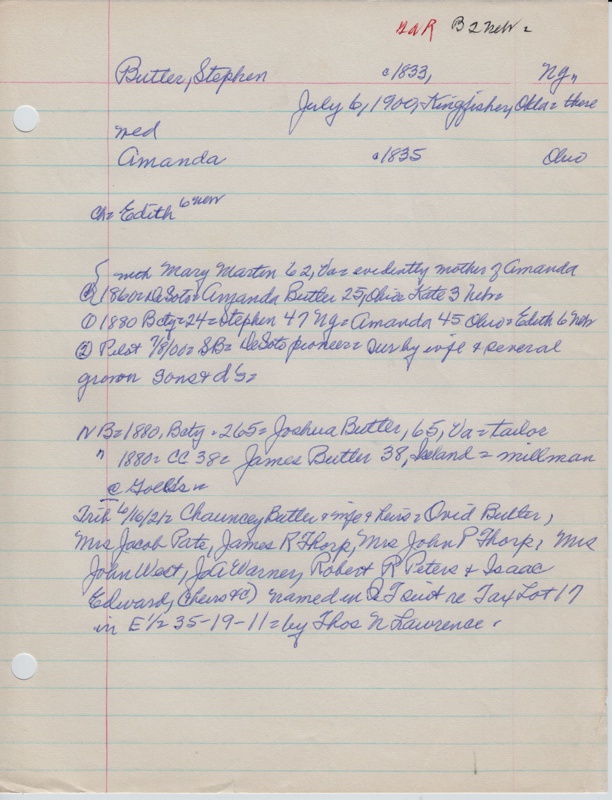 GaR B 2 Nebr =
Butler, Stephen c 1833, Ng,,
July 6, 1900, Kingfisher, Okla = there
med
Amanda c 1835 Ohio
Ch = Edith 6 nebr
with Mary Marten 62, Va = evidently mother of Amanda
1860 = DeSoto = Amanda Butler 25, Ohio = Kate 3 Nebr
① 1880 Bcty = 24 = Stephen 47 Ng = Amanda 45 Ohio = Edith 6 Nebr
② Pilot 7/8/00 = SB = DeSoto pioneer = Sur by wife & several
grown sons & d's =
NB = 1880, Bcty = 265 = Joshua Butler, 65, Va = tailor
" 1880 = CC 38 = James Butler 38, Ireland = millman
@ Goll's =
Trib 6/16/21 = Chauncey Butler & wife & heirs = Ovid Butler,
Mrs Jacob Pate, James R Thorp, Mrs John P Thorp, Mrs
John West, JA Warner, Robert R Peters & Isaac
Edward, (heirs &c) named in Q T suit re Tax Lot 17
in E 1/2 35-19-11 = by Thos N Lawrence.